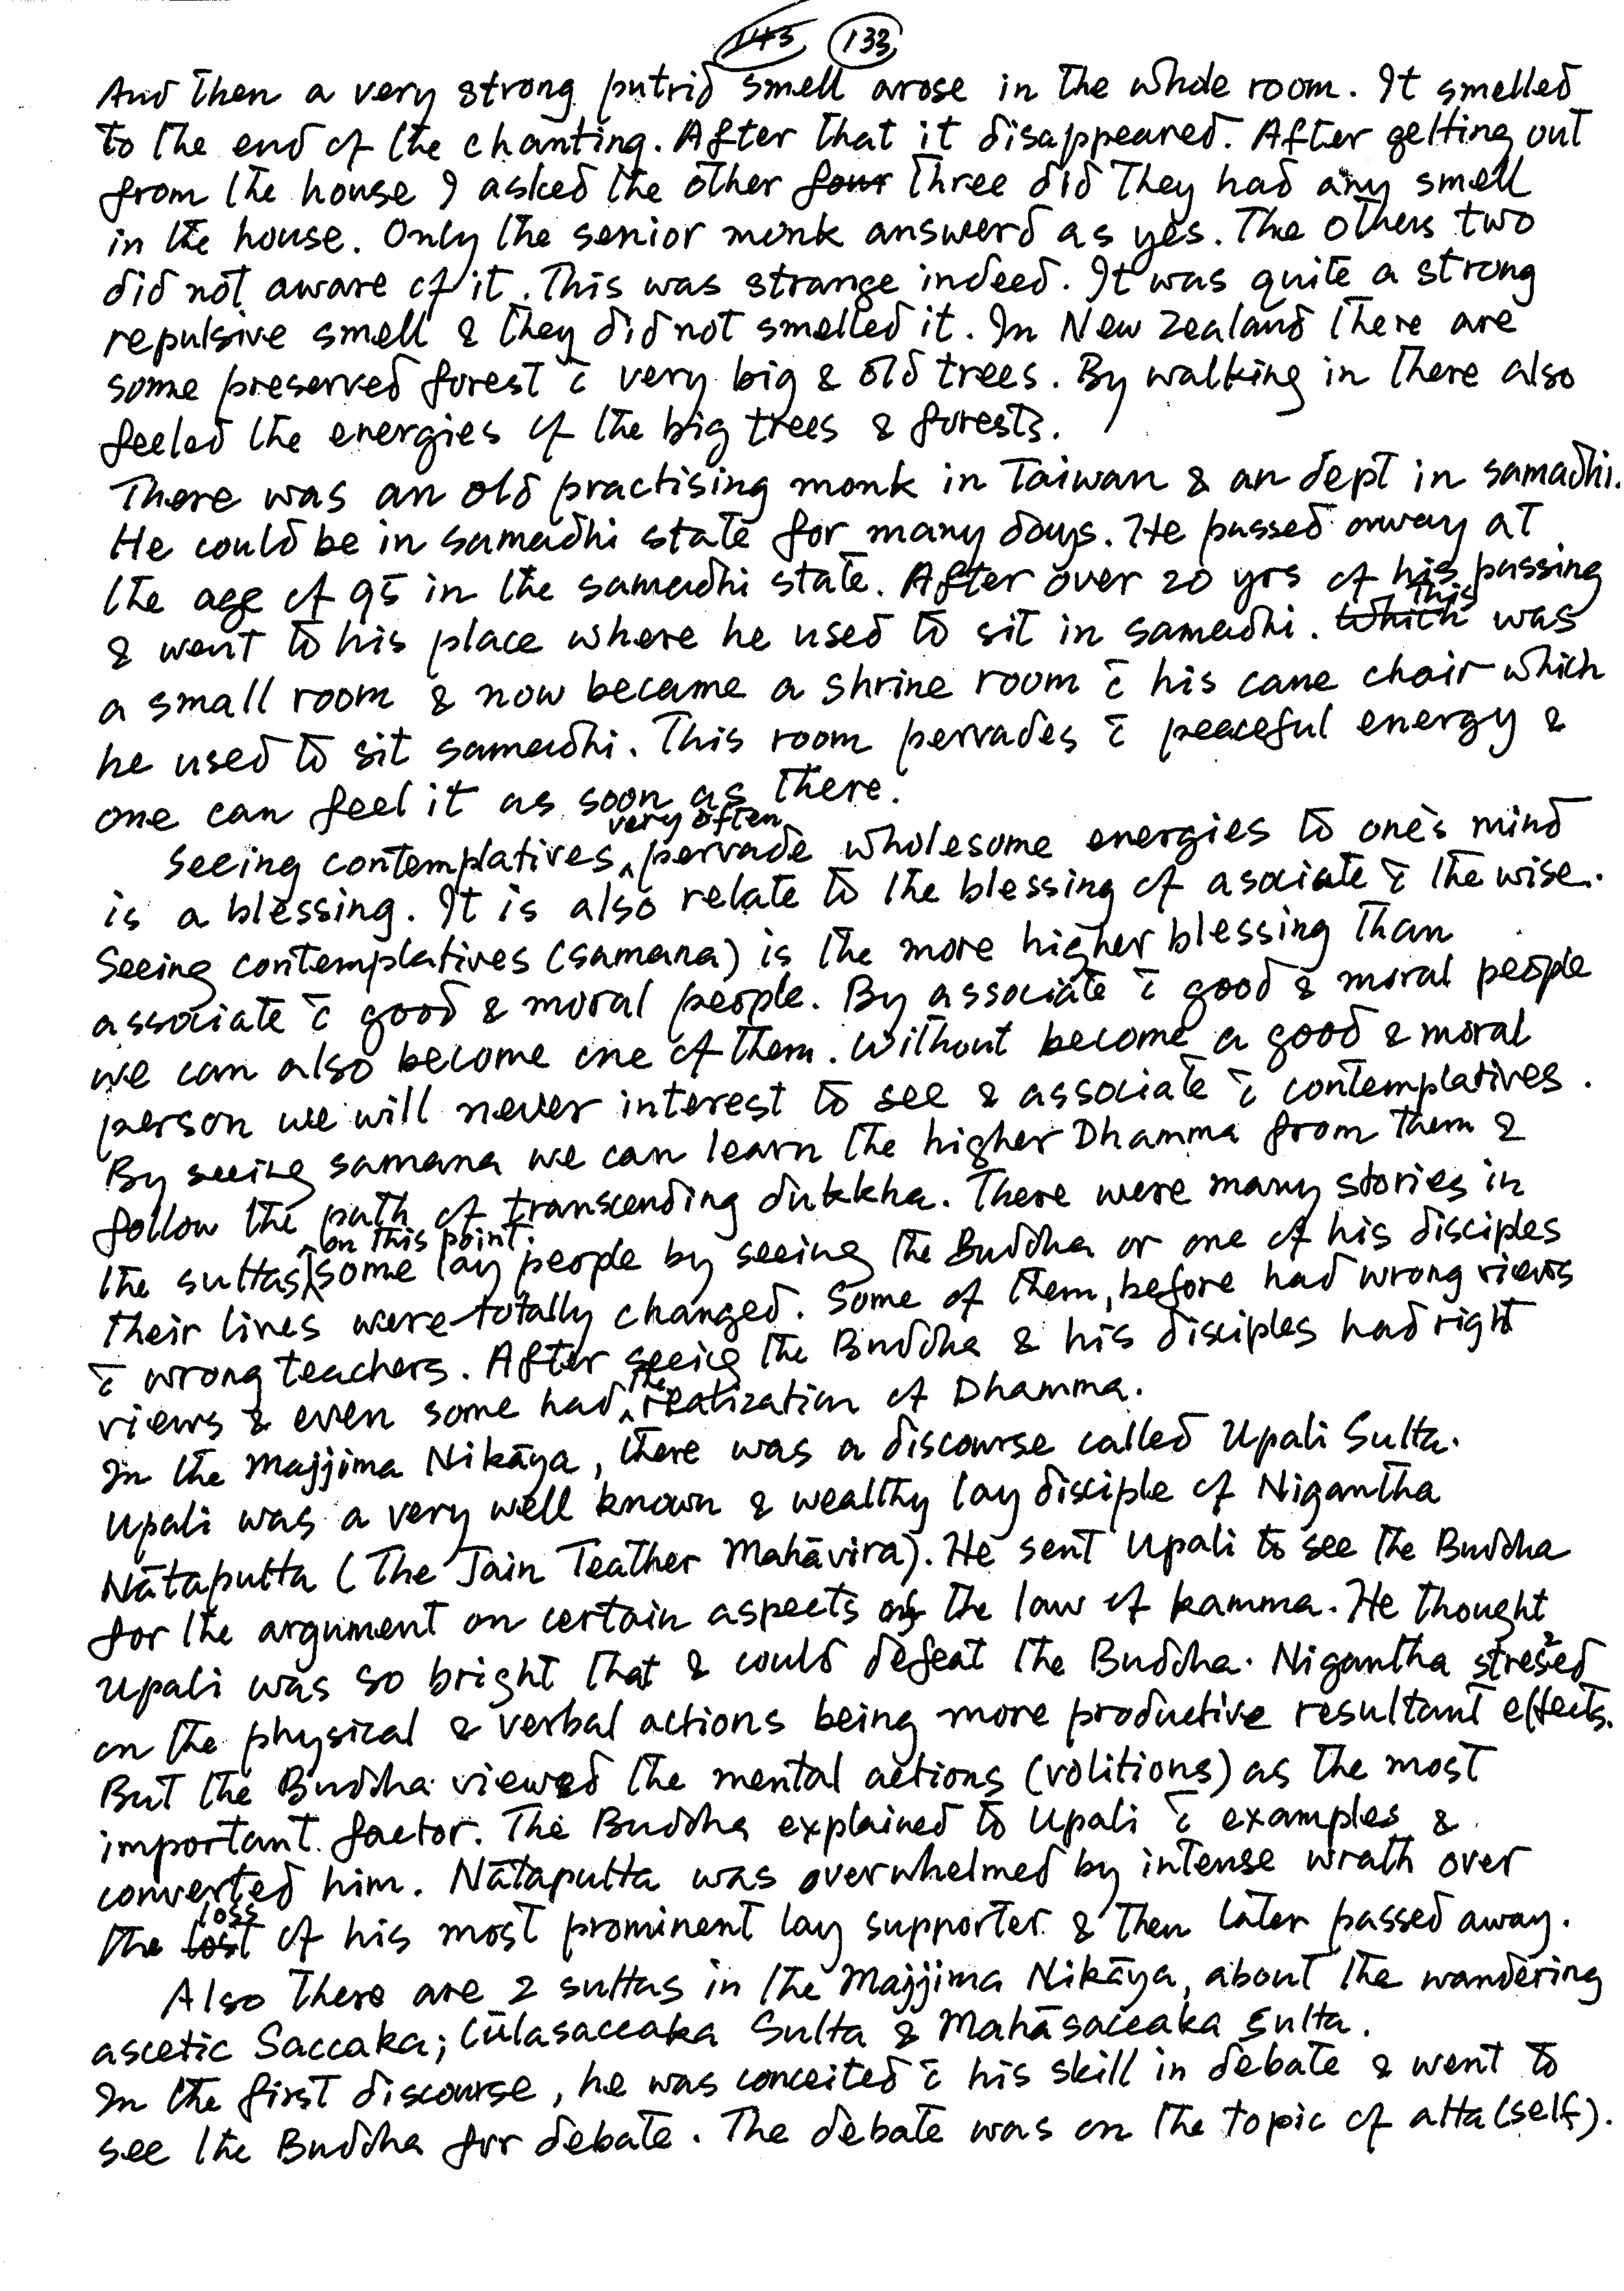 143 133
And then a very strong putrid smell arose in the whole room. It smelled
to the end of the chanting. After that it disappeared. After getting out
from the house I asked the other four three did they had any smell
in the house. Only the senior monk answerd as yes. The others two
did not aware of it. This was strange indeed. It was quite a strong
repulsive smell & they did not smelled it. In New Zealand there are
some preserved forest c̄ very big & old trees. By walking in there also
feeled the energies of the big trees & forests.
There was an old practising monk in Taiwan & an dept in samadhi.
He could be in samadhi state for many days. He passed away at
the age of 95 in the samadhi state. After over 20 yrs of his passing
& went to his place where he used to sit in samadhi. Which This was
a small room & now became a shrine room c̄ his cane chair which
he used to sit samadhi. This room pervades c̄ peaceful energy &
one can feel it as soon as there.
Seeing contemplatives very often pervade wholesome energies to one's mind
is a blessing. It is also relate to the blessing of asociate c̄ the wise.
Seeing contemplatives (samana) is the more higher blessing than
associate c̄ good & moral people. By associate c̄ good & moral people
we can also become one of them. Without become a good & moral
person we will never interest to see & associate c̄ contemplatives.
By seeing samana we can learn the higher Dhamma from them &
follow the path of transcending dukkha. There were many stories in
the suttas on this point. Some lay people by seeing the Buddha or one of his disciples
their lives were totally changed. Some of them, before had wrong views
c̄ wrong teachers. After seeing the Buddha & his disciples had right
views & even some had the realization of Dhamma.
In the Majjima Nikāya, there was a discourse called Upali Sutta.
Upali was a very well known & wealthy lay disciple of Nigantha
Nātaputta (The Jain Teather Mahāvira). He sent Upali to see the Buddha
for the argument on certain aspects of the law of kamma. He thought
Upali was so bright that & could defeat the Buddha. Nigantha stressed
on the physical & verbal actions being more productive resultant effects.
But the Buddha viewed the mental actions (volitions) as the most
important factor. The Buddha explained to Upali c̄ examples &
converted him. Nātaputta was overwhelmed by intense wrath over
the lost loss of his most prominent lay supporter & then later passed away.
Also there are 2 suttas in the Majjima Nikāya, about the wandering
ascetic Saccaka; Cūlasaccaka Sutta & Mahāsaccaka Sutta.
In the first discourse, he was conceited c̄ his skill in debate & went to
see the Buddha for debate. The debate was on the topic of atta (self).